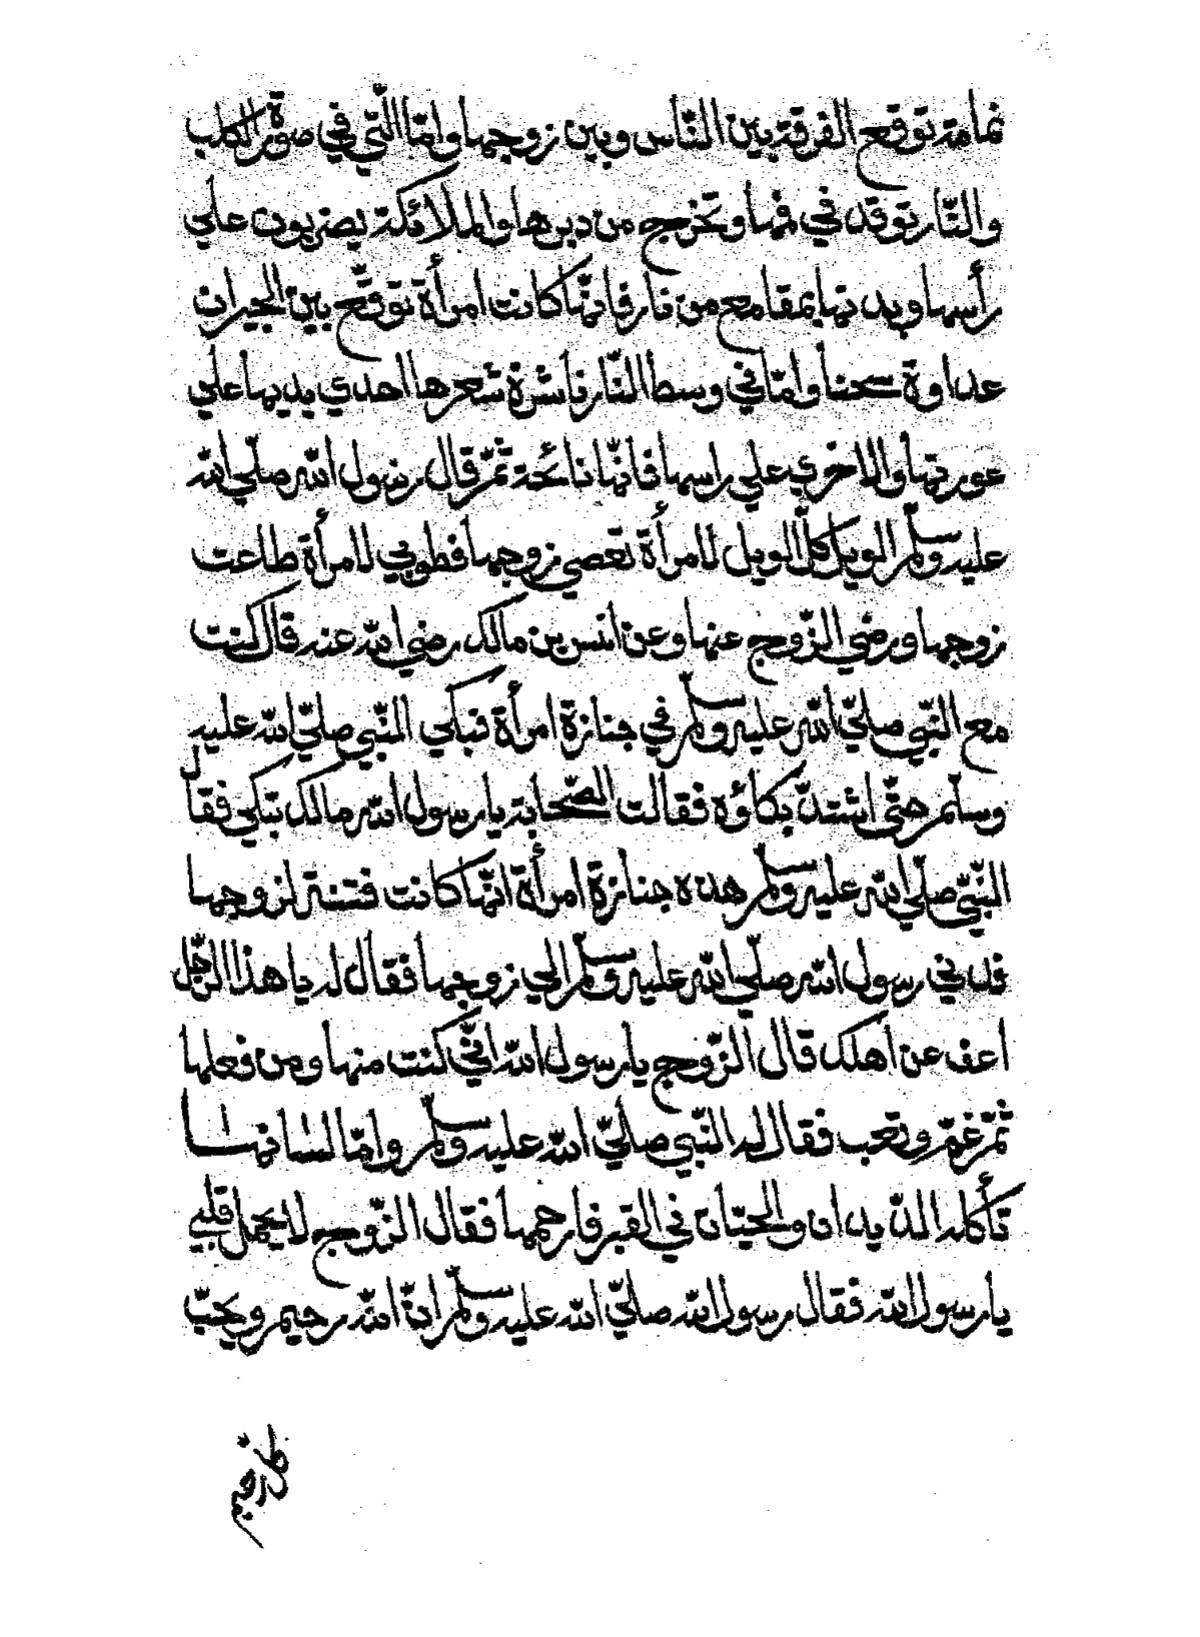 نمامة توقع الفرقة بين النّاس وبين زوجها وامّا الّتي في صورة الكلب
والنّار توقد في فمها وتخرج من دبرها والملائكة يضربون علي
رأسها ويديها بمقامع من نار فانّها كانت امرأة توقّع بين الجيران
عداوة سحنا وامّا في وسط النّار ناشرة شعرها احدي يديها علي
عورتها والاخري علي راسها فانّها نائحة ثمّ قال رسول الله صلّي الله
عليه وسلّم الويل كلّ الويل لامرأة تعصي زوجها فطوبي لامرأة طاعت
زوجها ورضي الزّوج عنها وعن انس بن مالك رضي الله عنه قال كنت
مع النّبي صلّي الله عليه وسلّم في جنازة امرأة فبكي النّبي صلّي الله عليه
وسلّم حتّي اشتدّ بكاؤه فقالت الصّحابة يا رسول الله مالك تبكي فقال
النّبيّ صلّي الله عليه وسلّم هذه جنازة امرأة انّها كانت فتنة لزوجها
فدني رسول الله صلّي الله عليه وسلّم الي زوجها فقال له يا هذا الرّجل
اعف عن اهلك قال الزّوج يا رسول الله انّي كنت منها ومن فعلها
ثمّ غمّ وتعب فقال له النّبي صلّي الله عليه وسلّم وامّا لسانها
تأكله الدّيدان والحيّات في القبر فارحمها فقال الزّوج لا يحمل قلبي
يا رسول الله فقال رسول الله صلّي الله عليه وسلّم انّ الله رحيم ويحبّ
كلّ رحيم